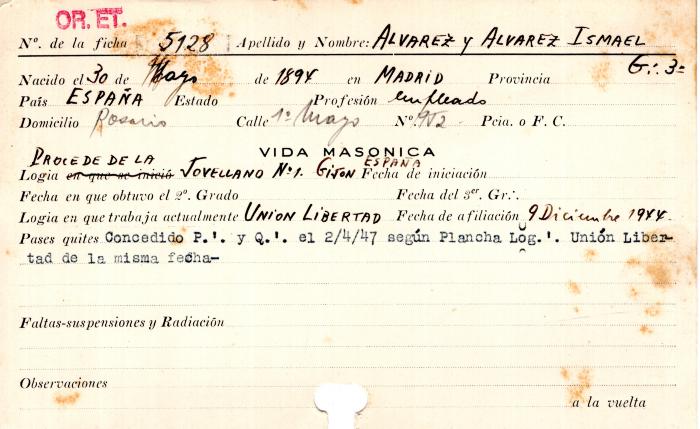 OR. ET.
Nº. de la ficha 5128 Apellido y Nombre: ALVAREZ Y ALVAREZ ISMAEL
G∴ 3º
Nacido el 30 de Mayo de 1894 en MADRID Provincia
País ESPAÑA Estado Profesión empleado
Domicilio Rosario Calle 1º Mayo Nº. 952 Pcia. o F. C.
VIDA MASONICA
PROCEDE DE LA ESPAÑA
Logia en que se inició JOVELLANO Nº1. GIJON Fecha de iniciación
Fecha en que obtuvo el 2º. Grado Fecha del 3er. Gr∴
Logia en que trabaja actualmente UNION LIBERTAD Fecha de afiliación 9 Diciembre 1944.
Pases quites Concedido P.'. y Q.'. el 2/4/47 según Plancha Log.'. Unión Liber-
tad de la misma fecha-
Faltas-suspensiones y Radiación
Observaciones
a la vuelta